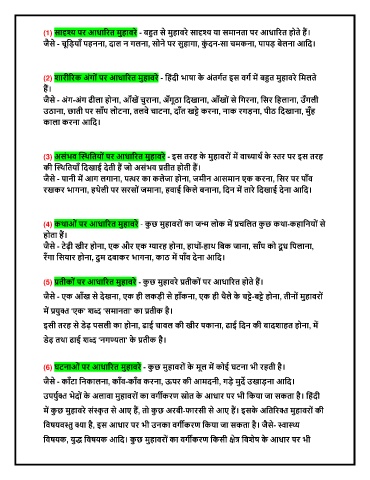 (1) सादृश्य पर आधारित मुहावरे - बहुत से मुहावरे सादृश्य या समानता पर आधारित होते हैं।
जैसे - चूड़ियाँ पहनना, दाल न गलना, सोने पर सुहागा, कुंदन-सा चमकना, पापड़ बेलना आदि।
(2) शारीरिक अंगों पर आधारित मुहावरे - हिंदी भाषा के अंतर्गत इस वर्ग में बहुत मुहावरे मिलते
हैं।
जैसे - अंग-अंग ढीला होना, आँखें चुराना, अँगूठा दिखाना, आँखों से गिरना, सिर हिलाना, उँगली
उठाना, छाती पर साँप लोटना, तलवे चाटना, दाँत खट्टे करना, नाक रगड़ना, पीठ दिखाना, मुँह
काला करना आदि।
(3) असंभव स्थितियों पर आधारित मुहावरे - इस तरह के मुहावरों में वाच्यार्थ के स्तर पर इस तरह
की स्थितियाँ दिखाई देती हैं जो असंभव प्रतीत होती हैं।
जैसे - पानी में आग लगाना, पत्थर का कलेजा होना, जमीन आसमान एक करना, सिर पर पाँव
रखकर भागना, हथेली पर सरसों जमाना, हवाई किले बनाना, दिन में तारे दिखाई देना आदि।
(4) कथाओं पर आधारित मुहावरे - कुछ मुहावरों का जन्म लोक में प्रचलित कुछ कथा-कहानियों से
होता हैं।
जैसे - टेढ़ी खीर होना, एक और एक ग्यारह होना, हाथों-हाथ बिक जाना, साँप को दूध पिलाना,
रँगा सियार होना, दुम दबाकर भागना, काठ में पाँव देना आदि।
(5) प्रतीकों पर आधारित मुहावरे - कुछ मुहावरे प्रतीकों पर आधारित होते हैं।
जैसे - एक आँख से देखना, एक ही लकड़ी से हाँकना, एक ही थैले के चट्टे-बट्टे होना, तीनों मुहावरों
में प्रयुक्त 'एक' शब्द 'समानता' का प्रतीक है।
इसी तरह से डेढ़ पसली का होना, ढाई चावल की खीर पकाना, ढाई दिन की बादशाहत होना, में
डेढ़ तथा ढाई शब्द 'नगण्यता' के प्रतीक है।
(6) घटनाओं पर आधारित मुहावरे - कुछ मुहावरों के मूल में कोई घटना भी रहती है।
जैसे - काँटा निकालना, काँव-काँव करना, ऊपर की आमदनी, गड़े मुर्दे उखाड़ना आदि।
उपर्युक्त भेदों के अलावा मुहावरों का वर्गीकरण स्रोत के आधार पर भी किया जा सकता है। हिंदी
में कुछ मुहावरे संस्कृत से आए हैं, तो कुछ अरबी-फारसी से आए हैं। इसके अतिरिक्त मुहावरों की
विषयवस्तु क्या है, इस आधार पर भी उनका वर्गीकरण किया जा सकता है। जैसे- स्वास्थ्य
विषयक, युद्ध विषयक आदि। कुछ मुहावरों का वर्गीकरण किसी क्षेत्र विशेष के आधार पर भी